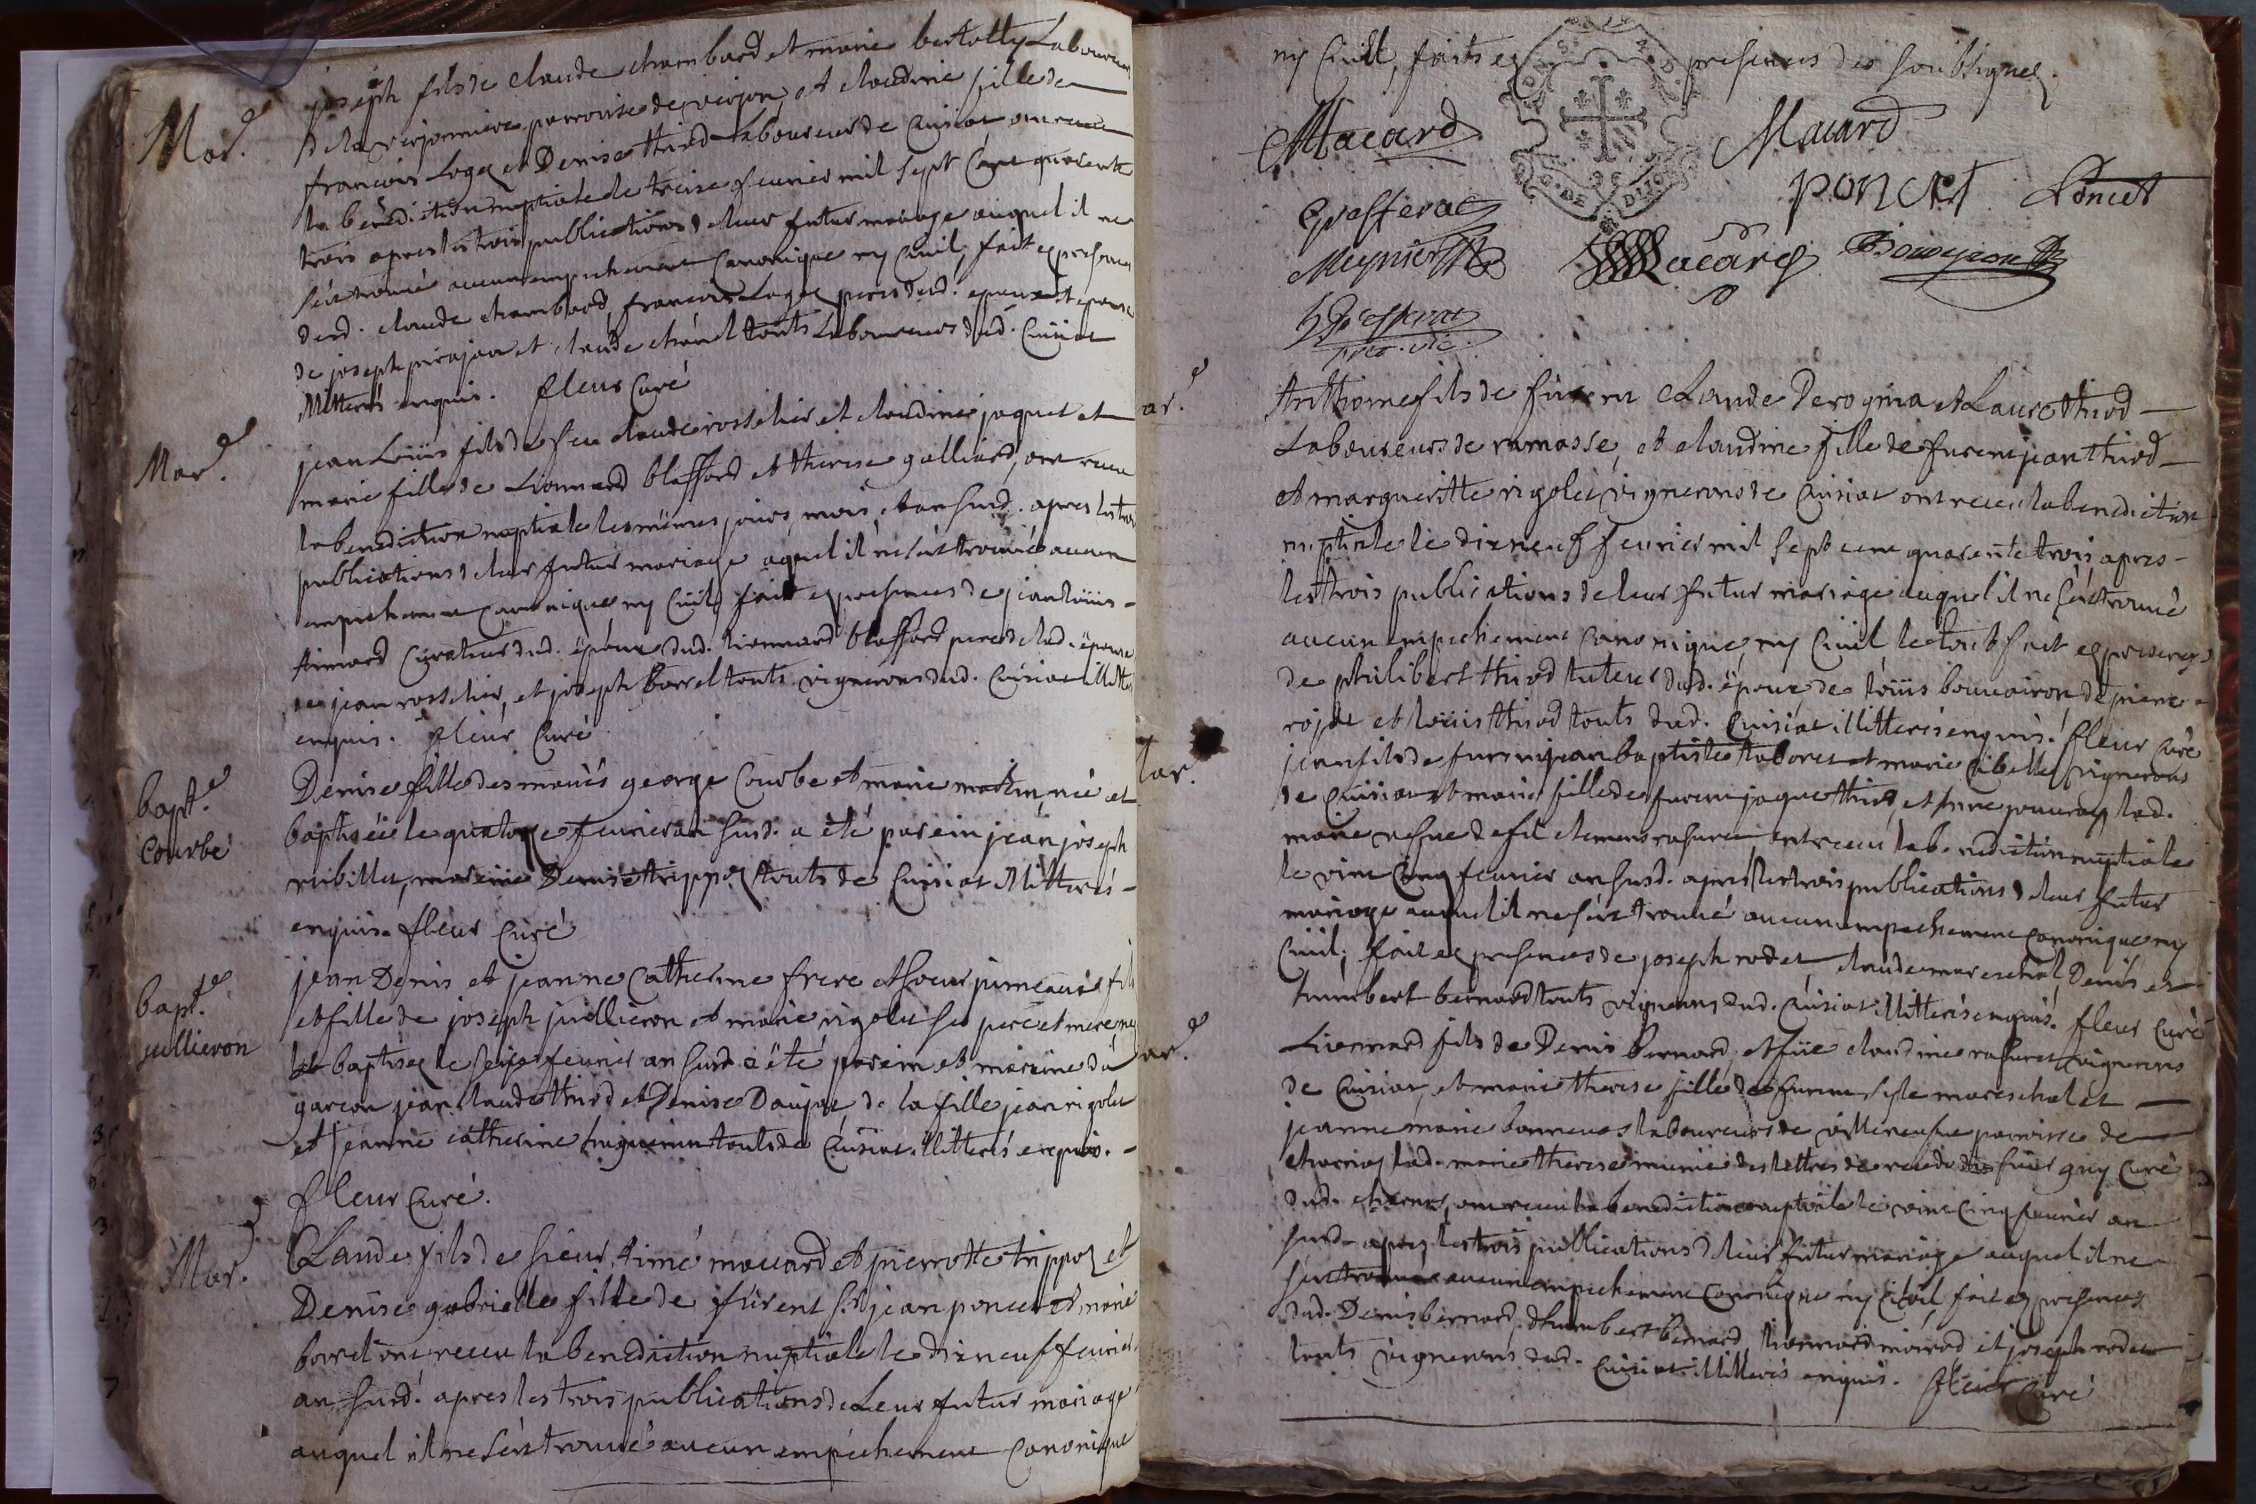 Mar.e
joseph fils de claude chambard et marie bertolly Laboureurs
de la verjonniere parroisse de verjon, et claudine fille de
francois Logez et Denise thiod Laboureurs de Cuisiat ont receu
la benediction nuptiale le treise feuvrier mil sept Cent quarente
trois apres les trois publications de leur futur mariage auquel il ne
s'est trouvé aucun empechement Canonique ny Civil, fait es presences
dud. claude chambard, francois Logez peres dud. epoux et epouse
de joseph et claude touts Laboureurs dud. Cuisiat
illitterés enquis. fleur Curé
Mar.e
jean Loüis fils de feu claude rosselier et claudine jaquet et
marie fille de Lionnard blaffard et therese galliard, ont receu
la benediction nuptiale les mêmes jours, mois, et an susd. apres les trois
publications de leur futur mariage aquel il ne s'est trouvé aucun
empechement Canonique ny Civil, fait es presences de jean loüis
Aimard Curateur dud. époux dud. lionnard blaffard pere de lad. épouse
de jean rosselier, et joseph borrel touts vignerons dud. Cuisiat illitterés
enquis. fleur Curé
bapt.e
Courbe
Denise fille des mariés george Courbe et marie martin, née et
baptisée le quatorze feuvrier an susd. a été parein jean joseph
rubillet, mareine Denise trippoz touts de Cuisiat illitterés
enquis. fleur Curé
bapt.e
jullieron
jean Denis et jeanne Catherine frere et soeur jumeaux fils
et fille de joseph jullieron et marie rigolet ses pere et mere nez
et baptisez le seise feuvrier an susd. a été parein et mareine du
garçon jean claude thiod et Denise Daujat, de la fille jean rigolet
et jeanne catherine touts de Cuisiat illitterés enquis.
fleur Curé.
Mar.e
Claude fils de sieur Aimé macard et pierrotte trippoz et
Denise gabrielle fille de fûrent sr jean poncet et marie
borrel ont receu la benediction nuptiale le dixneuf feuvrier
an susd. apres les trois publications de Leur futur mariage
auquel il ne s'est trouvé aucun empechement Canonique
ny Civil, faits es presences des soubsignez.
Macard Macard
poncet Poncet
Grefferat
Meynier Macard
pret. vic.
ar.e
Anthiome fils de fûrent Claude Derognia et Laure thiod
Laboureurs de ramasse, et claudine fille de furent jean thiod
et marguerítte rigolet vignerons de Cuisiat ont receu la benediction
nuptiale le dixneuf feuvrier mil sept cent quarente trois apres
les trois publications de leur futur mariage auquel il ne s'est trouvé
aucun empechement Canonique, ny Civil, le tout fait es presences
de philibert thiod tuteur dud. époux, de loüis bouvairon de pierre
rojat et loüis thiod touts dud. Cuisiat illitterés enquis. fleur Curé
Mar.
jean fils de furent jean baptiste taboret et marie vignerons
de Cuisiat et marie fille de furent jaque thiod, et lad.
marie vefve de fû clement rasuret, ont receu la benediction nuptiale
le vint Cinq feuvrier an susd. apres les trois publications de leur futur
mariage auquel il ne s'est trouvé aucun empechement Canonique ny
Civil, fait es presences de joseph rodet, claude mareschal, Denis et
humbert bernard touts vignerons dud. Cuisiat illitterés enquis. fleur Curé
ar.e
Lionnard fils de Denis bernard, et fûe claudine rasuret vignerons
de Cuisiat, et marie therese fille de furent mareschal et
jeanne marie bonneuas laboureurs de villeneufve parroisse de
lad. marie therese munie des lettres de sieur guy Curé
dud. ont receu la benediction nuptiale le vint Cinq feuvrier an
susd. apres les trois publications de leur futur mariage auquel il ne
s'est trouvé aucun empechement Canonique ny Civil, fait es presences
dud. Denis bernard, d'humbert bernard, lionnard moirod et joseph rodet
touts vignerons dud. Cuisiat illitterés enquis. fleur Curé